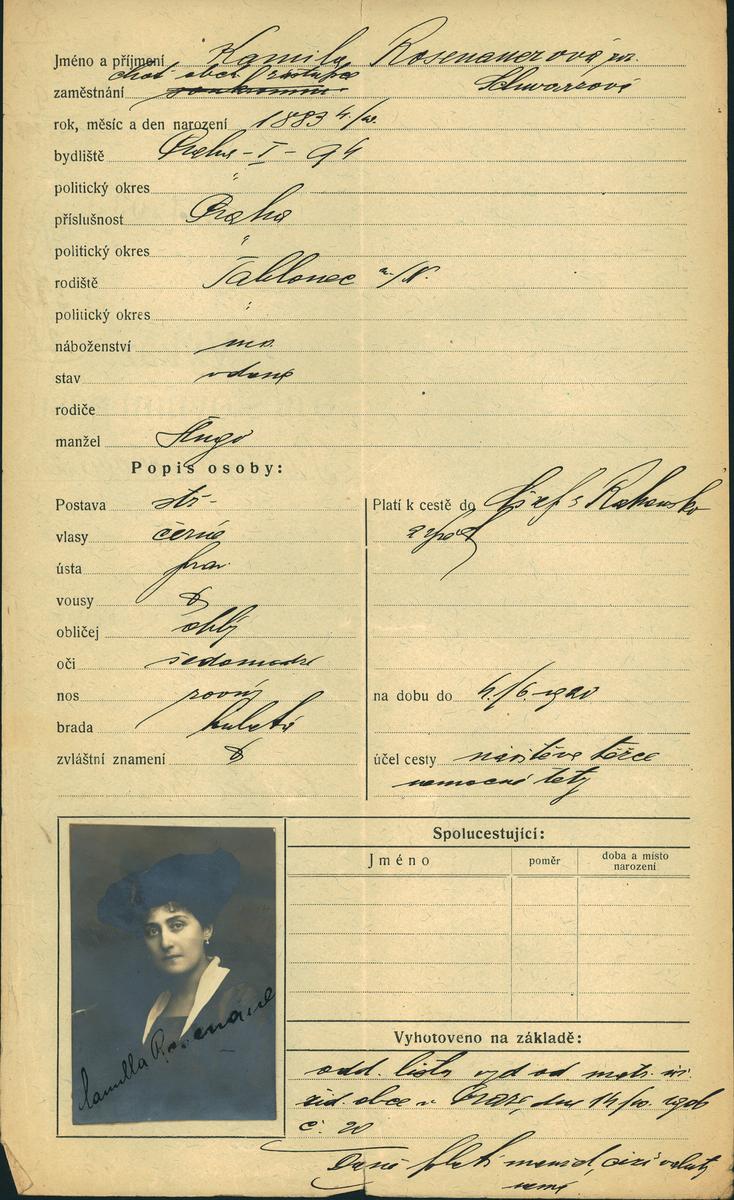 Jméno a příjmení Kamila Rosenauerová roz.
choť obch. zástupce Schwarzová
zaměstnání soukromnice
rok, měsíc a den narození 1883 4/
bydliště Praha - I - 94
politický okres "
příslušnost Praha
politický okres "
rodiště Jablonec n./N.
politický okres "
náboženství mos.
stav vdaná
rodiče
manžel Hugo
Popis osoby:
Postava stř.
vlasy černé
ústa prav.
vousy
obličej oblý
oči šedomodré
nos rovný
brada kulatá
zvláštní znamení
Platí k cestě do Rakousko
a zpět
na dobu do 4./6. 1920
účel cesty návštěva těžce
nemocné tety
Spolucestující:
Jméno poměr doba a místo narození
Camilla Rosenauer
Vyhotoveno na základě:
odd. listu vyd. od matr. isr.
žid. obce v Praze, dne 14/10 1906
č. 20
Daně platí manžel, cizí valuty
nemá